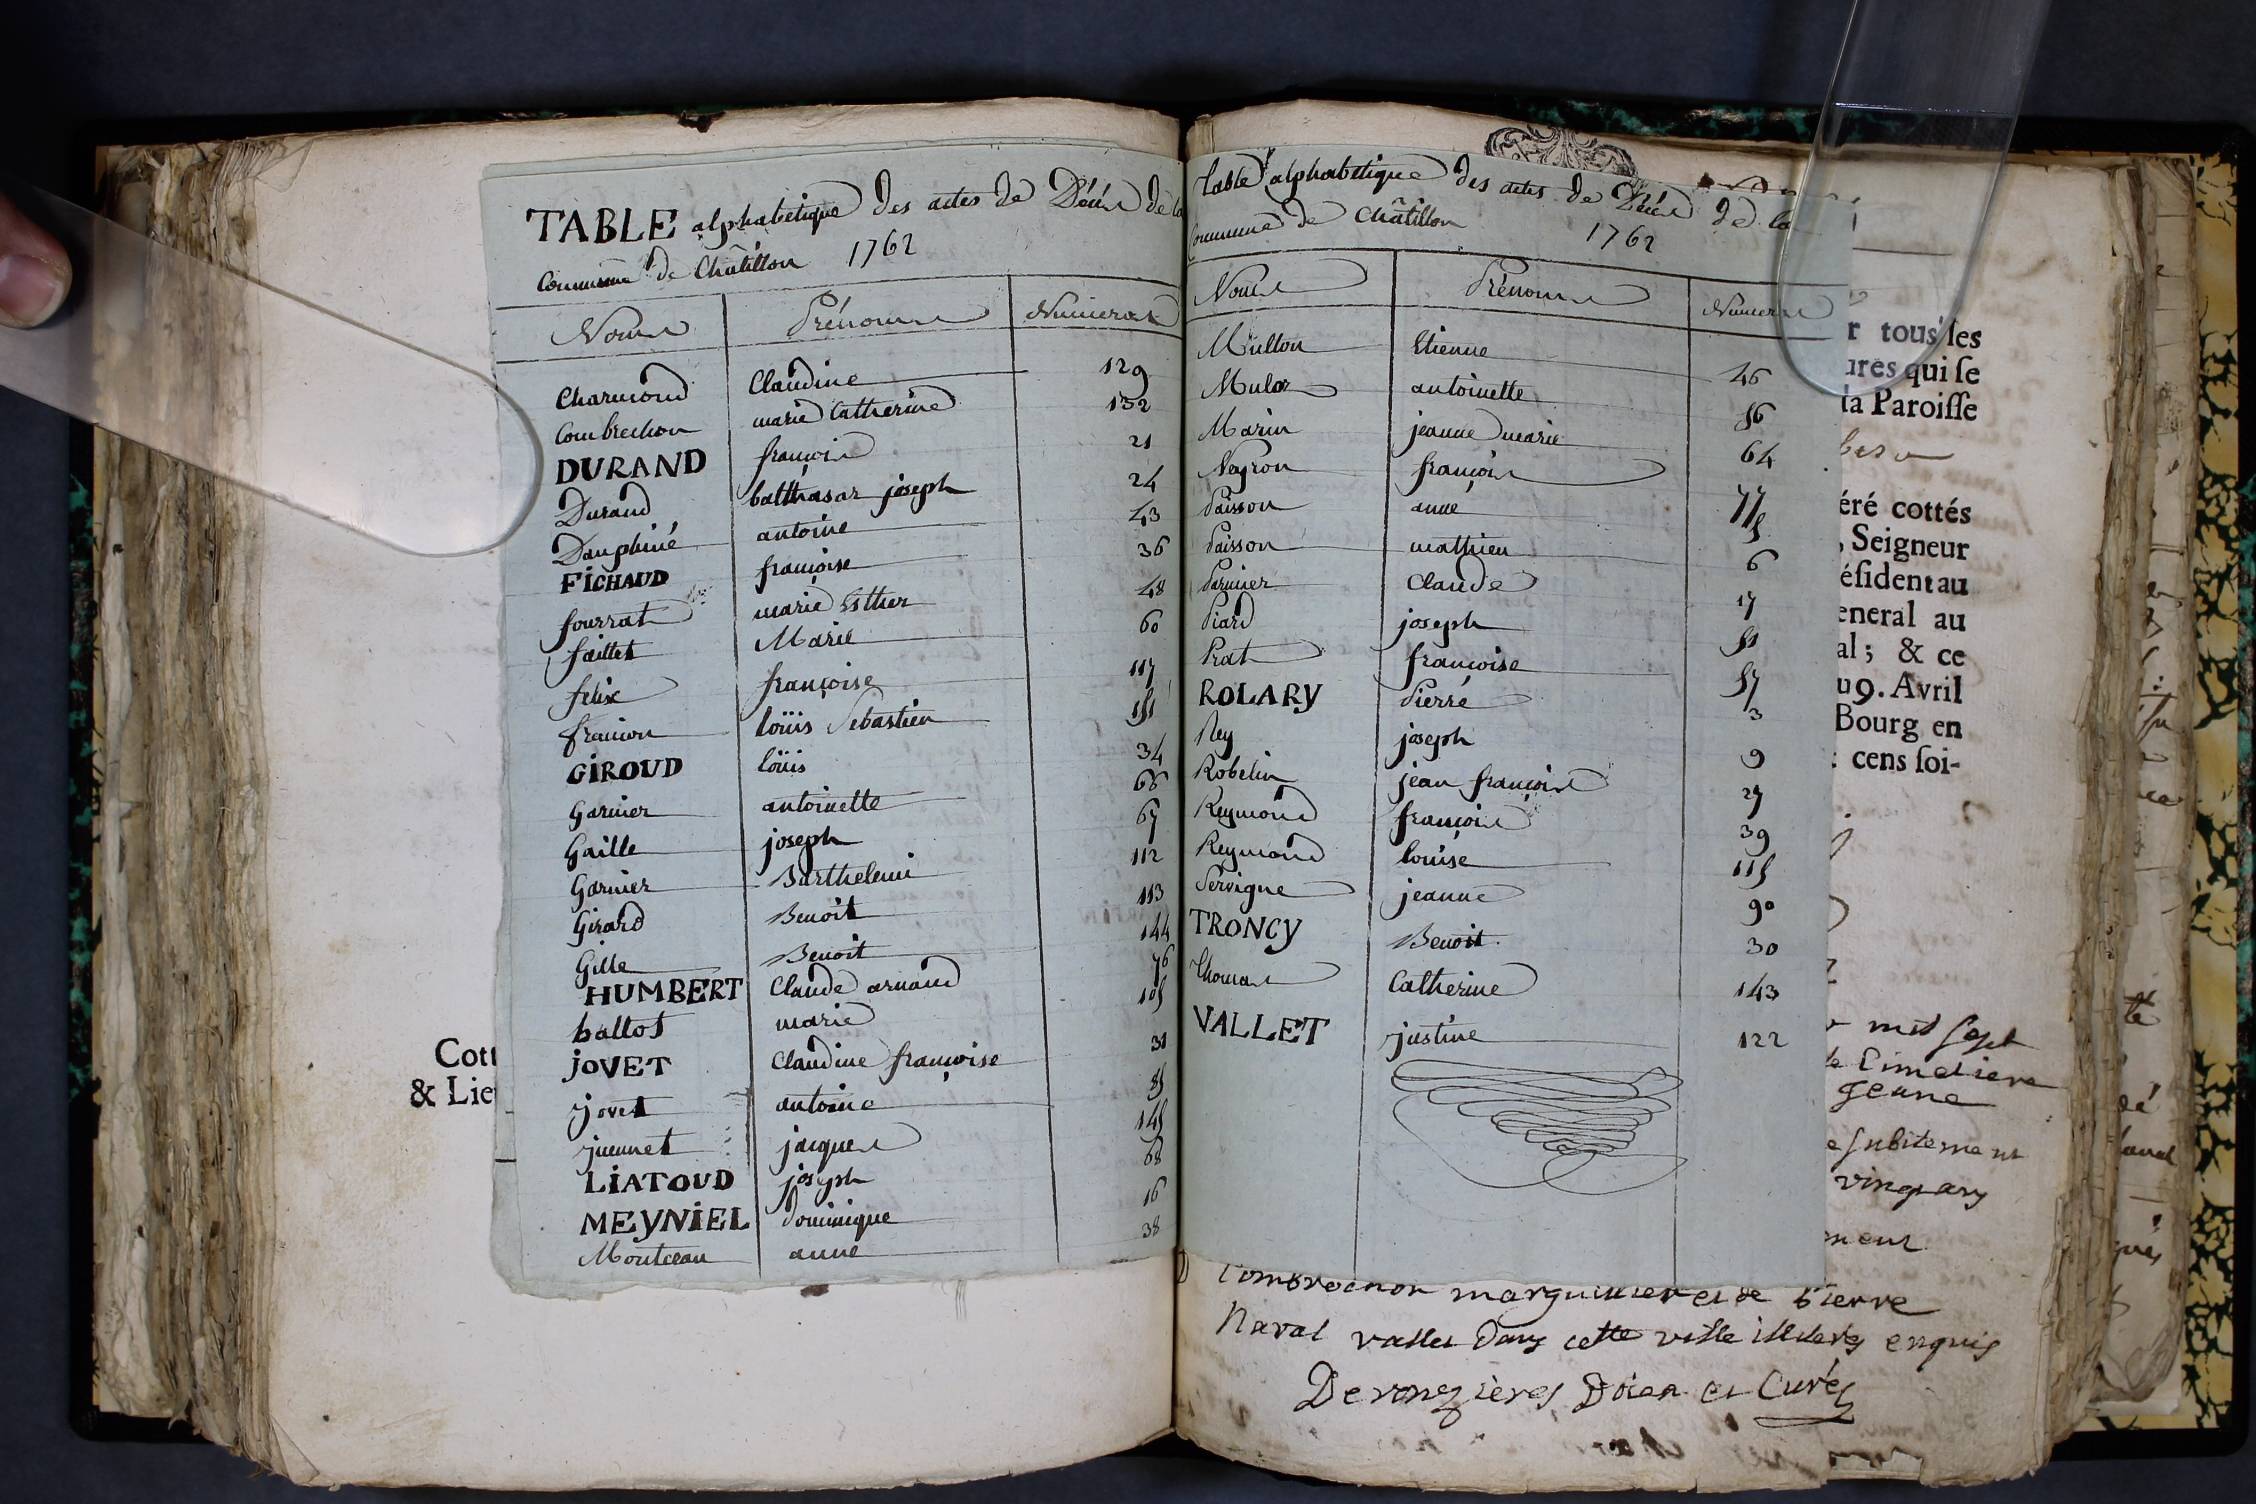 TABLE alphabétique des actes de Décès de la
Commune de Châtillon 1762
Noms Prénoms Numéros
Charmond Claudine 129
Combrechon marie Catherine 132
DURAND françois 21
Durand balthasar joseph 24
Dauphiné antoine 43
FICHAUD françoise 36
fourrat marie Esther 48
faillet Marie 60
felix françoise 117
francon loüis Sebastien 151
GIROUD loüis 34
Garnier antoinette 66
Gaille joseph 67
Garnier Barthelemi 112
Girard Benoit 113
Gille Benoit 144
HUMBERT Claude arnaud 76
hallot marie 105
JOVET Claudine françoise 31
jovet antoine 85
juennet jacques 145
LIATOUD joseph 68
MEYNIEL dominique 16
Montceau anne 38
Cott
& Lie
table alphabétique des actes de Décès de la
Commune de Châtillon 1762
Noms Prénoms Numéros
Multon Etienne 46
Mulor antoinette 56
Marin jeanne marie 64
Neyron françois 77
Paisson anne
Paisson mathieu 6
Parmier Claude 17
Piard joseph 51
Prat françoise 57
ROLARY Pierre 3
Rey joseph 9
Robelin jean françois 27
Reymond françois 39
Reymond louise 115
Servigne jeanne 90
TRONCY Benoit 30
Thomas Catherine 143
VALLET justine 122
r tous les
ures qui se
la Paroisse
éré cottés
, Seigneur
ésident au
eneral au
al; & ce
u 9. Avril
Bourg en
cens soi-
mil sept
le Cimetiere
geane
subitement
vingt ans
Combrochon marguillier et de Pierre
Naval vallet dans cette ville illiteres enquis
Devenzières Doien et Curé